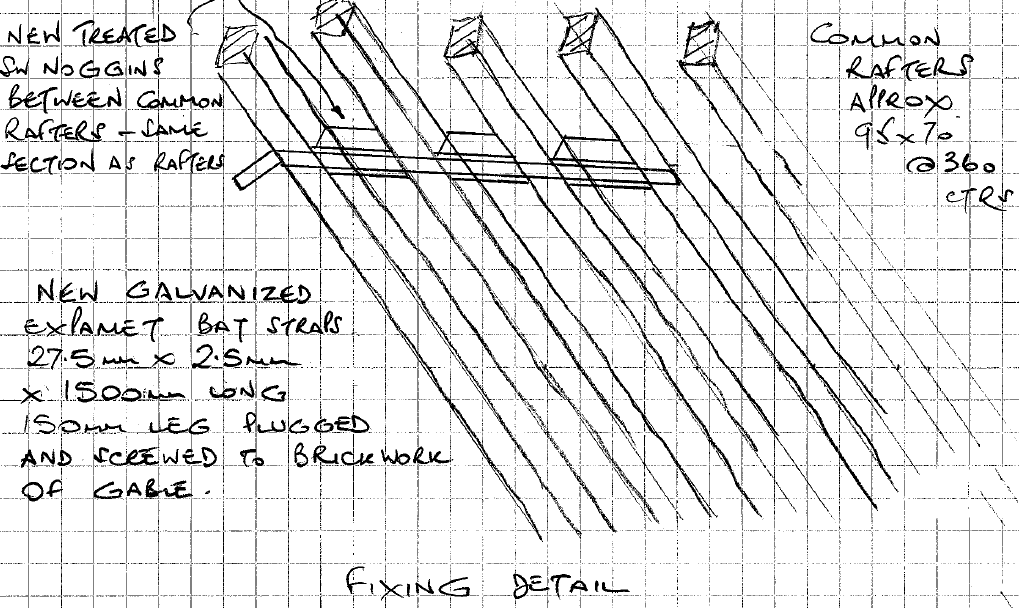 NEW TREATED
SW NOGGINS
BETWEEN COMMON
RAFTERS - SAME
SECTION AS RAFTERS
COMMON
RAFTERS
APPROX
95x70
@ 360
CTRS
NEW GALVANIZED
EXPAMET BAT STRAPS
27.5mm x 2.5mm
x 1500mm LONG
150mm LEG PLUGGED
AND SCREWED TO BRICKWORK
OF GABLE.
FIXING DETAIL